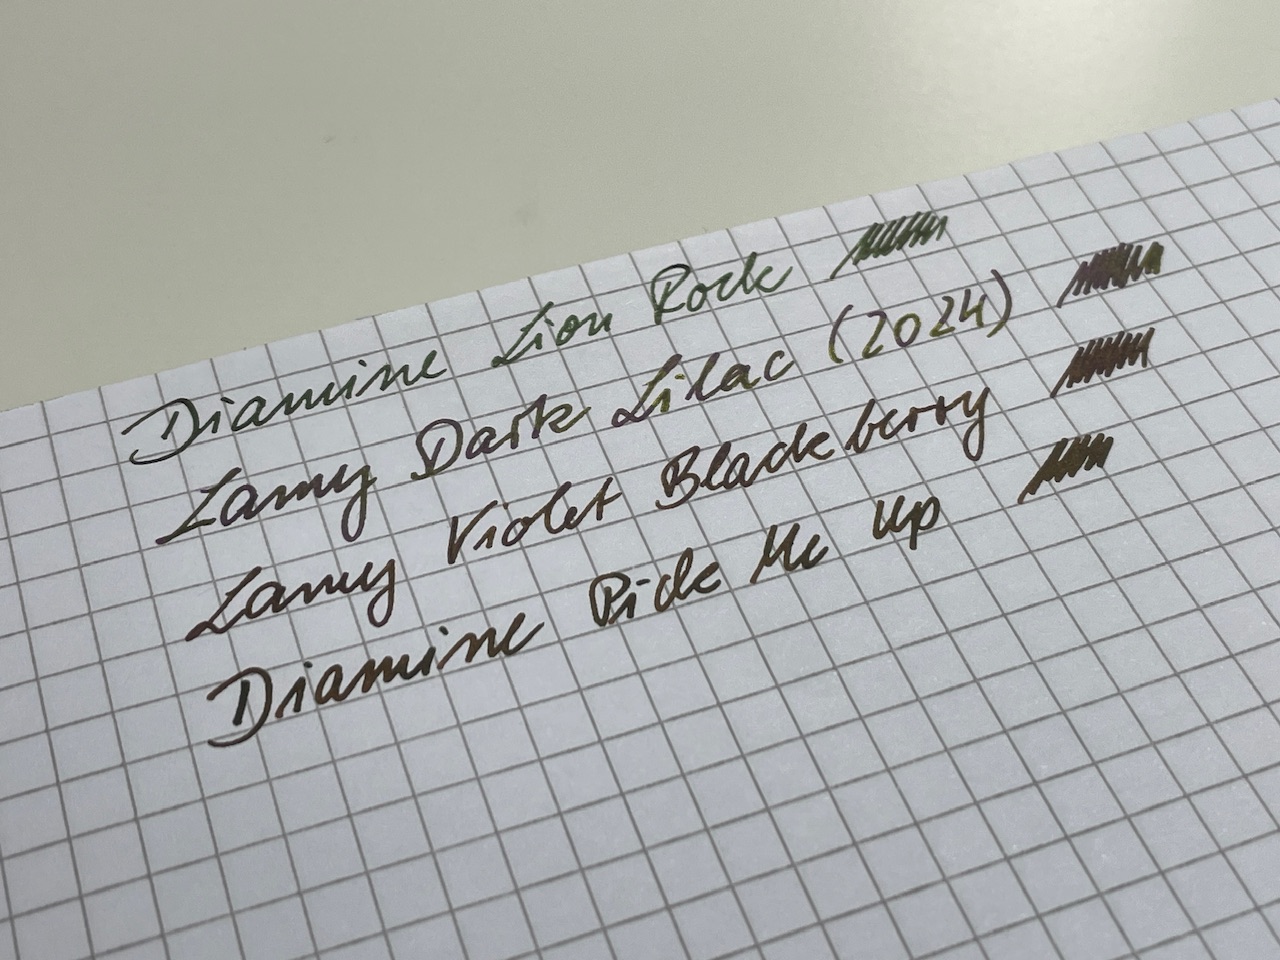 Diamine Lion Rock
Lamy Dark Lilac (2024)
Lamy Violet Blackberry
Diamine Pick Me Up